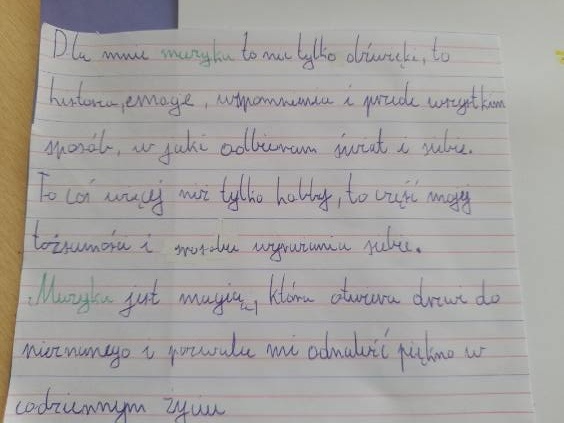 Dla mnie muzyka to nie tylko dźwięki, to
historia, emocje, wspomnienia i przede wszystkim
sposób, w jaki odbieram świat i siebie.
To coś więcej niż tylko hobby, to część mojej
tożsamości i sposobu wyrażania siebie.
Muzyka jest magią, która otwiera drzwi do
nieznanego i pozwala mi odnaleźć piękno w
codziennym życiu